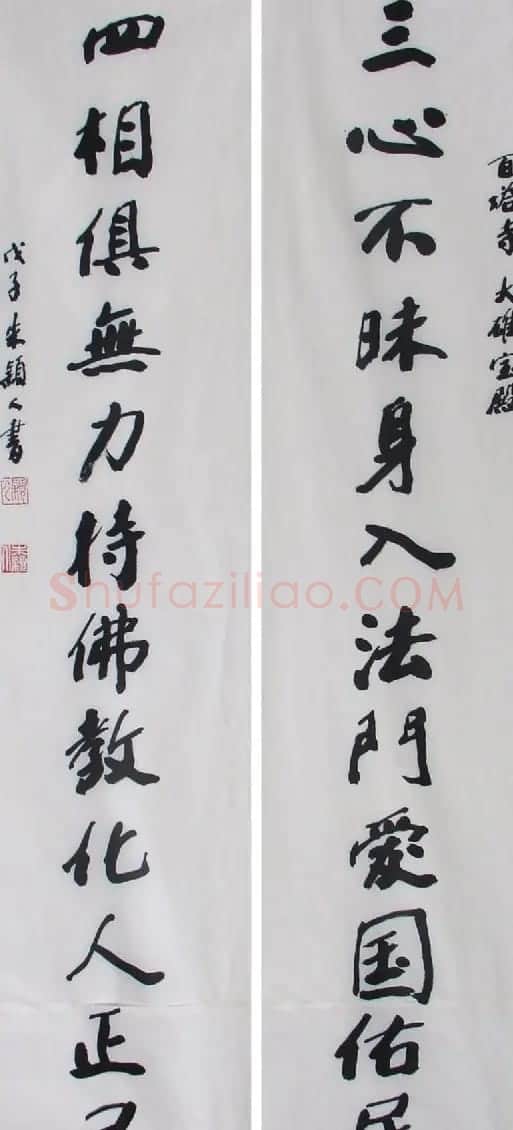 百塔寺 大雄宝殿
三心不昧身入法門愛国佑民
四相俱無力持佛教化人正己
戊子朱穎人書
Shufaziliao.COM